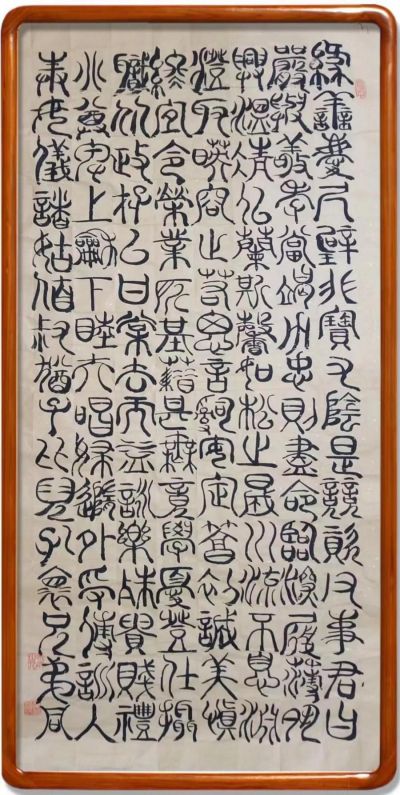 緣善慶尺璧非寶寸陰是競資父事君曰
嚴與敬孝當竭力忠則盡命臨深履薄夙
興溫凊似蘭斯馨如松之盛川流不息淵
澄取映容止若思言辭安定篤初誠美慎
終宜令榮業所基藉甚無竟學優登仕攝
職從政存以甘棠去而益詠樂殊貴賤禮
別尊卑上和下睦夫唱婦隨外受傅訓入
奉母儀諸姑伯叔猶子比兒孔懷兄弟同